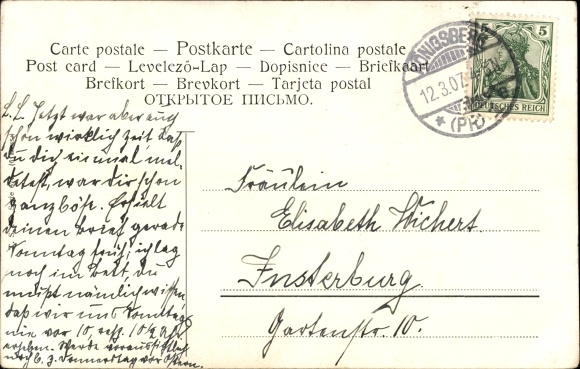 Carte postale — Postkarte — Cartolina postale
Post card — Levelező-Lap — Dopisnice — Briefkaart
Brefkort — Brevkort — Tarjeta postal
ОТКРЫТОЕ ПИСЬМО.
KÖNIGSBERG
12.3.07.
* (PR)
5
DEUTSCHES REICH
L. L. Jetzt war aber auch
schon wirklich Zeit daß
du dich einmal mel-
detest, war dir schon
ganz böse. Erhielt
deinen Brief gerade
Sonntag früh; ich lag
noch im Bett, du
mußt nämlich wissen
daß wir uns Sonntag
nie vor 10, resp. 10¼ Uhr
erheben. Werde voraussichtlich
noch Donnerstag vor Ostern.
Fräulein
Elisabeth Wichert
Insterburg.
Gartenstr. 10.